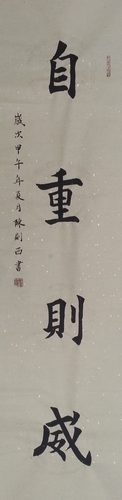 自重則威
歲次甲午年夏月陳剛正書